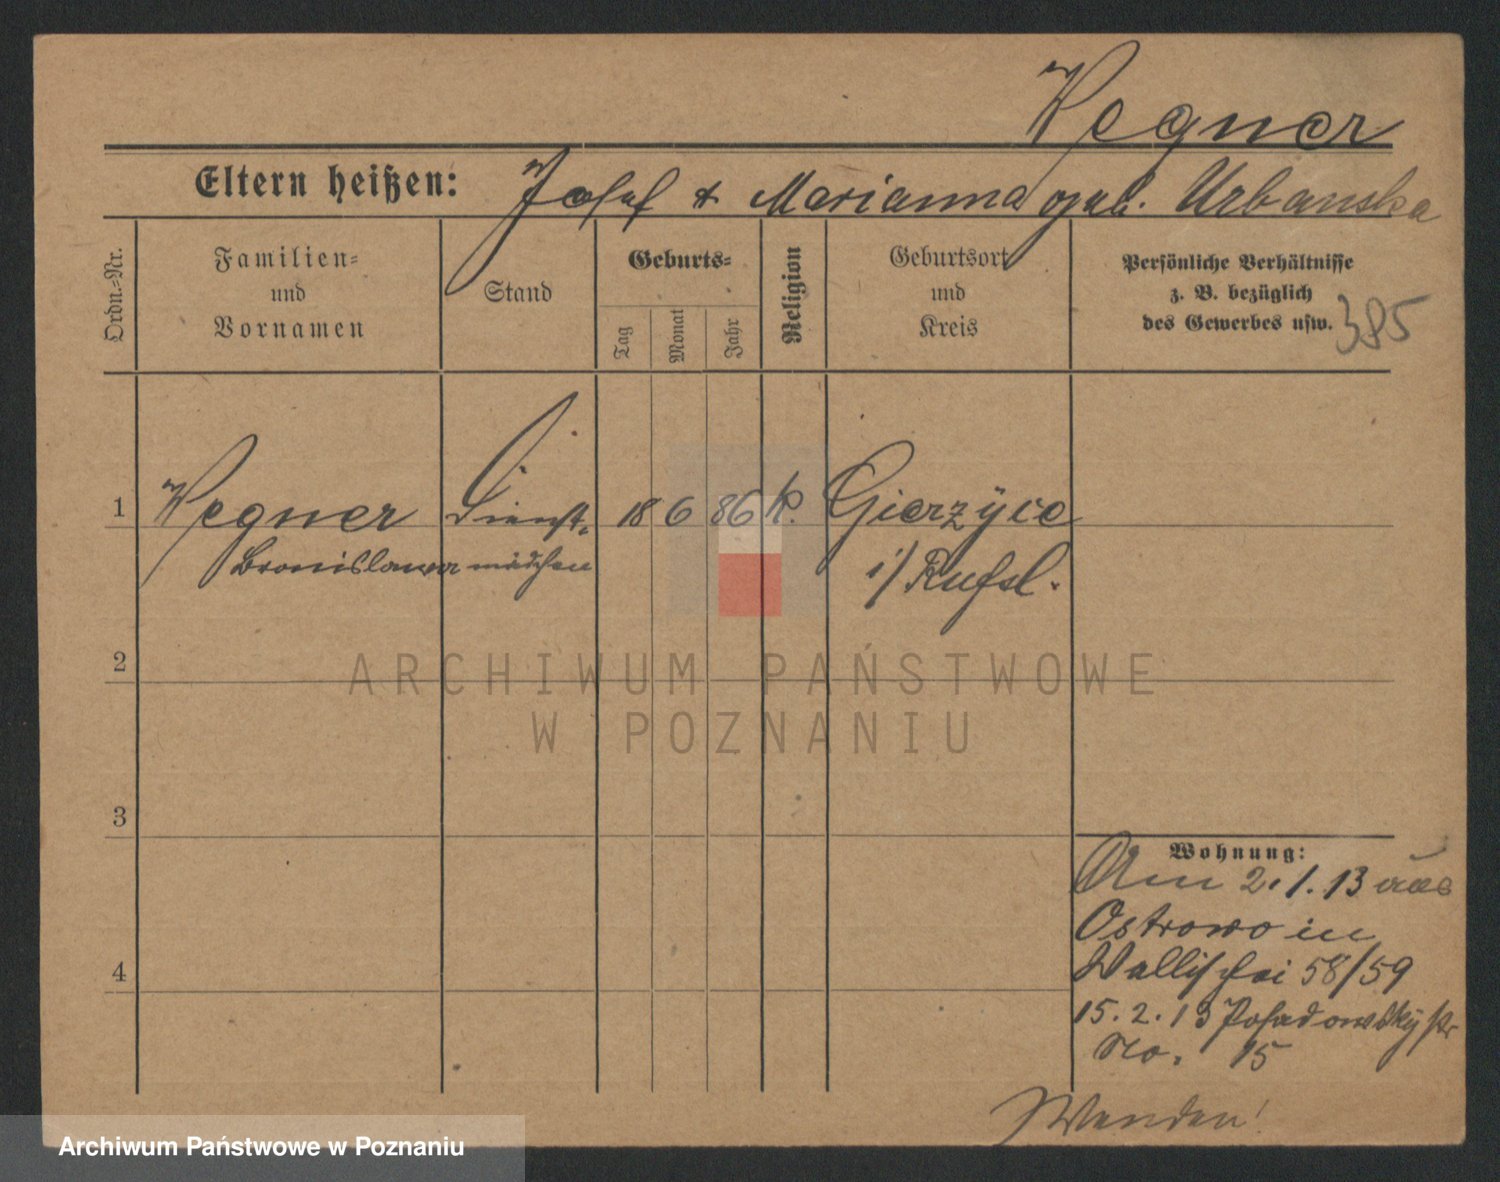 Wegner
Eltern heißen: Josef & Marianna geb. Urbanska
Ordn.-Nr.
Familien-
und
Vornamen
Stand
Geburts-
Tag
Monat
Jahr
Religion
Geburtsort
und
Kreis
Persönliche Verhältnisse
z. B. bezüglich
des Gewerbes usw.
385
1 Wegner Dienst- 18 6 86 k. Gierzyce
Bronislawa mädchen i/ Rußl.
2
3
4
Wohnung:
Am 2.1.13 aus
Ostrowo in
Wallischei 58/59
15.2.13 Posadowskystr
No. 15
Wenden!
ARCHIWUM PAŃSTWOWE
W POZNANIU
Archiwum Państwowe w Poznaniu